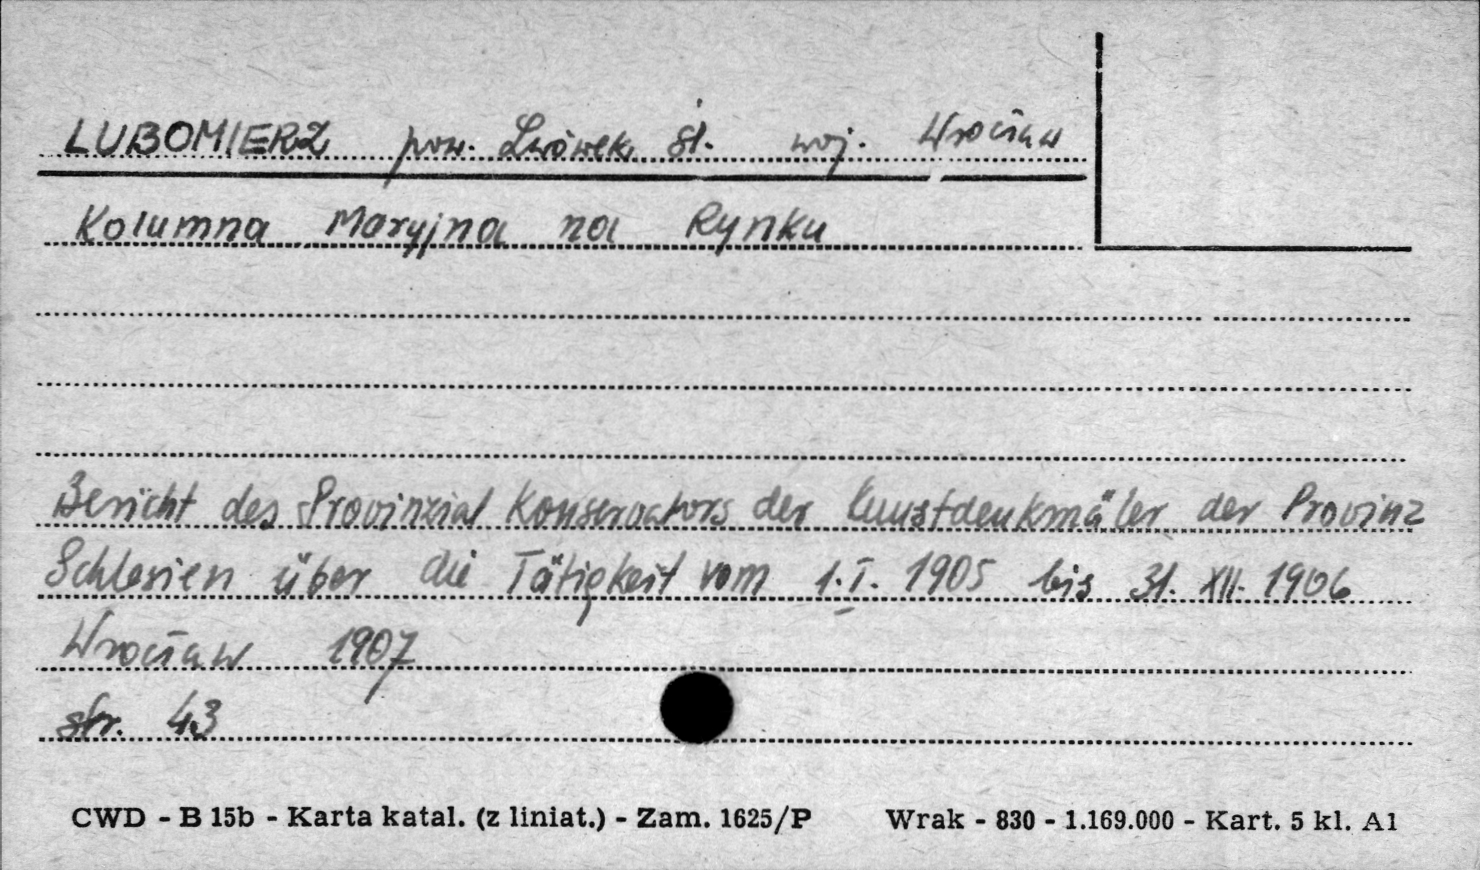 LUBOMIERZ pow. Lwówek Śl. woj. Wrocław
Kolumna Maryjna na Rynku
Bericht des Provinzial Konservators der Kunstdenkmäler der Provinz
Schlesien über die Tätigkeit vom 1.I. 1905 bis 31. XII. 1906
Wrocław 1907
str. 43
CWD - B 15b - Karta katal. (z liniat.) - Zam. 1625/P Wrak - 830 - 1.169.000 - Kart. 5 kl. A1